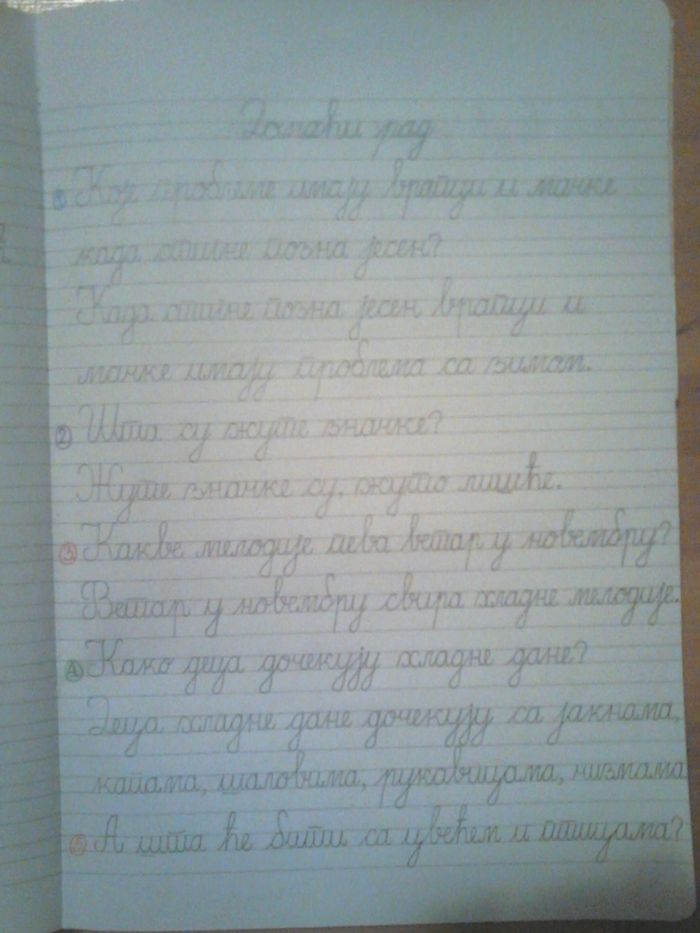 Домаћи рад
1 Које проблеме имају врапци и мачке
када стигне позна јесен?
Када стигне позна јесен врапци и
мачке имају проблема са зимом.
2 Шта су жуте значке?
Жуте значке су, жуто лишће.
3 Какве мелодије пева ветар у новембру?
Ветар у новембру свира хладне мелодије.
4 Како деца дочекују хладне дане?
Деца хладне дане дочекују са јакнама,
капама, шаловима, рукавицама,
5 А шта ће бити са цвећем и птицама?